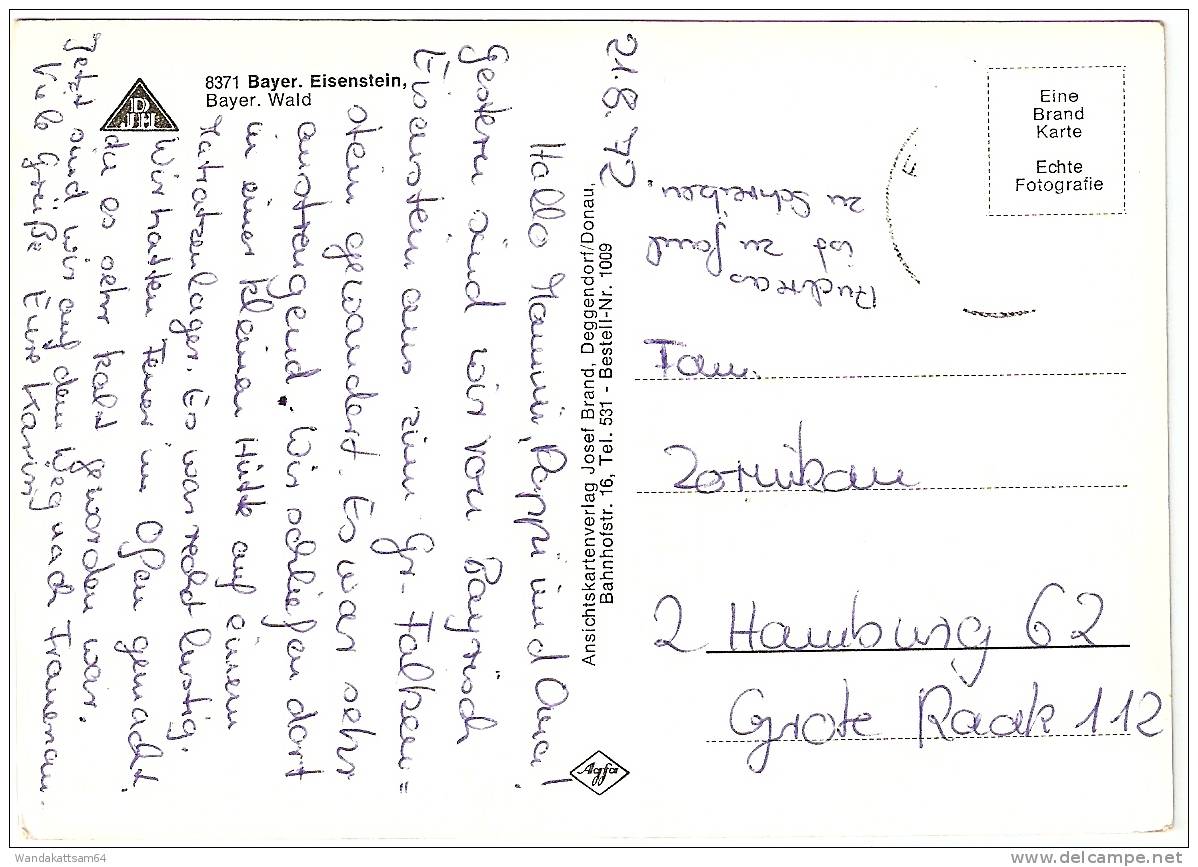 8371 Bayer. Eisenstein,
Bayer. Wald
D
JH
21.8.72
Hallo Mammi, Pappi und Oma!
Gestern sind wir von Bayrisch
Eisenstein aus zum Gr. Falken=
stein gewandert. Es war sehr
anstrengend. Wir schliefen dort
in einer kleinen Hütte auf einem
Matratzenlager. Es war recht lustig.
Wir hatten Feuer im Ofen gemacht,
da es sehr kalt geworden war.
Jetzt sind wir auf dem Weg nach Frauenau.
Viele Grüße Eure Karin
Andreas
ist zu faul
zu schreiben.
Ansichtskartenverlag Josef Brand, Deggendorf/Donau,
Bahnhofstr. 16, Tel. 531 - Bestell-Nr. 1009
Eine
Brand
Karte
Echte
Fotografie
Fam.
2 Hamburg 62
Grote Raak 112
Agfa
Wandakattsam64